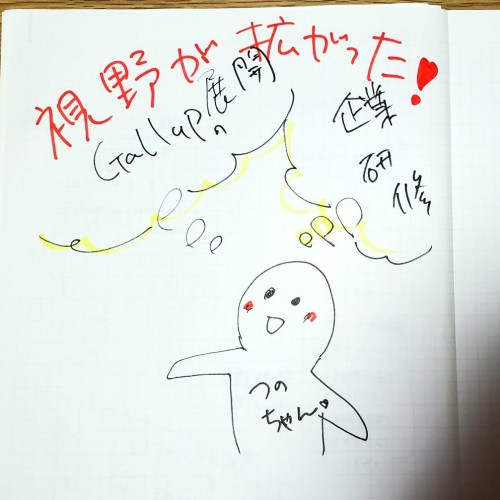 視野が拡がった!
Gallupの展開
企業
研修
つの
ちゃん